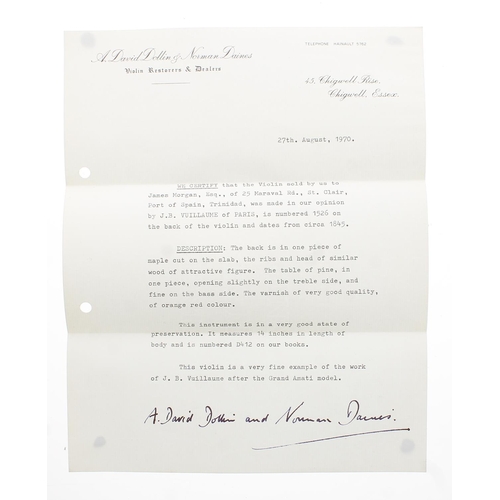 A. David Dollin & Norman Daines
Violin Restorers & Dealers
45, Chigwell Rise,
Chigwell, Essex.
27th. August, 1970.
WE CERTIFY that the Violin sold by us to
James Morgan, Esq., of 25 Maraval Rd., St. Clair,
Port of Spain, Trinidad, was made in our opinion
by J.B. VUILLAUME of PARIS, is numbered 1526 on
the back of the violin and dates from circa 1845.
DESCRIPTION: The back is in one piece of
maple cut on the slab, the ribs and head of similar
wood of attractive figure. The table of pine, in
one piece, opening slightly on the treble side, and
fine on the bass side. The varnish of very good quality,
of orange red colour.
This instrument is in a very good state of
preservation. It measures 14 inches in length of
body and is numbered D412 on our books.
This violin is a very fine example of the work
of J. B. Vuillaume after the Grand Amati model.
A. David Dollin and Norman Daines.